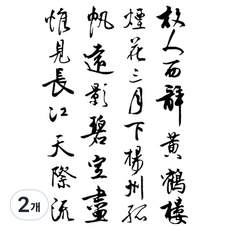 故人西辭黃鶴樓
煙花三月下楊州孤
帆遠影碧空盡
惟見長江天際流
2개